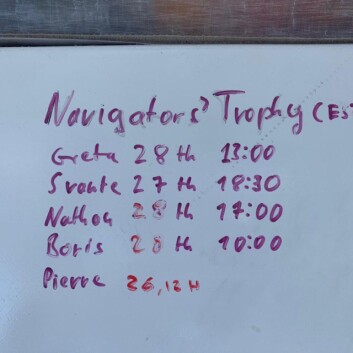 Navigators' Trophy (Es
Greta 28th 13:00
Svante 27th 18:30
Nathan 28th 17:00
Boris 28th 10:00
Pierre 26,12H